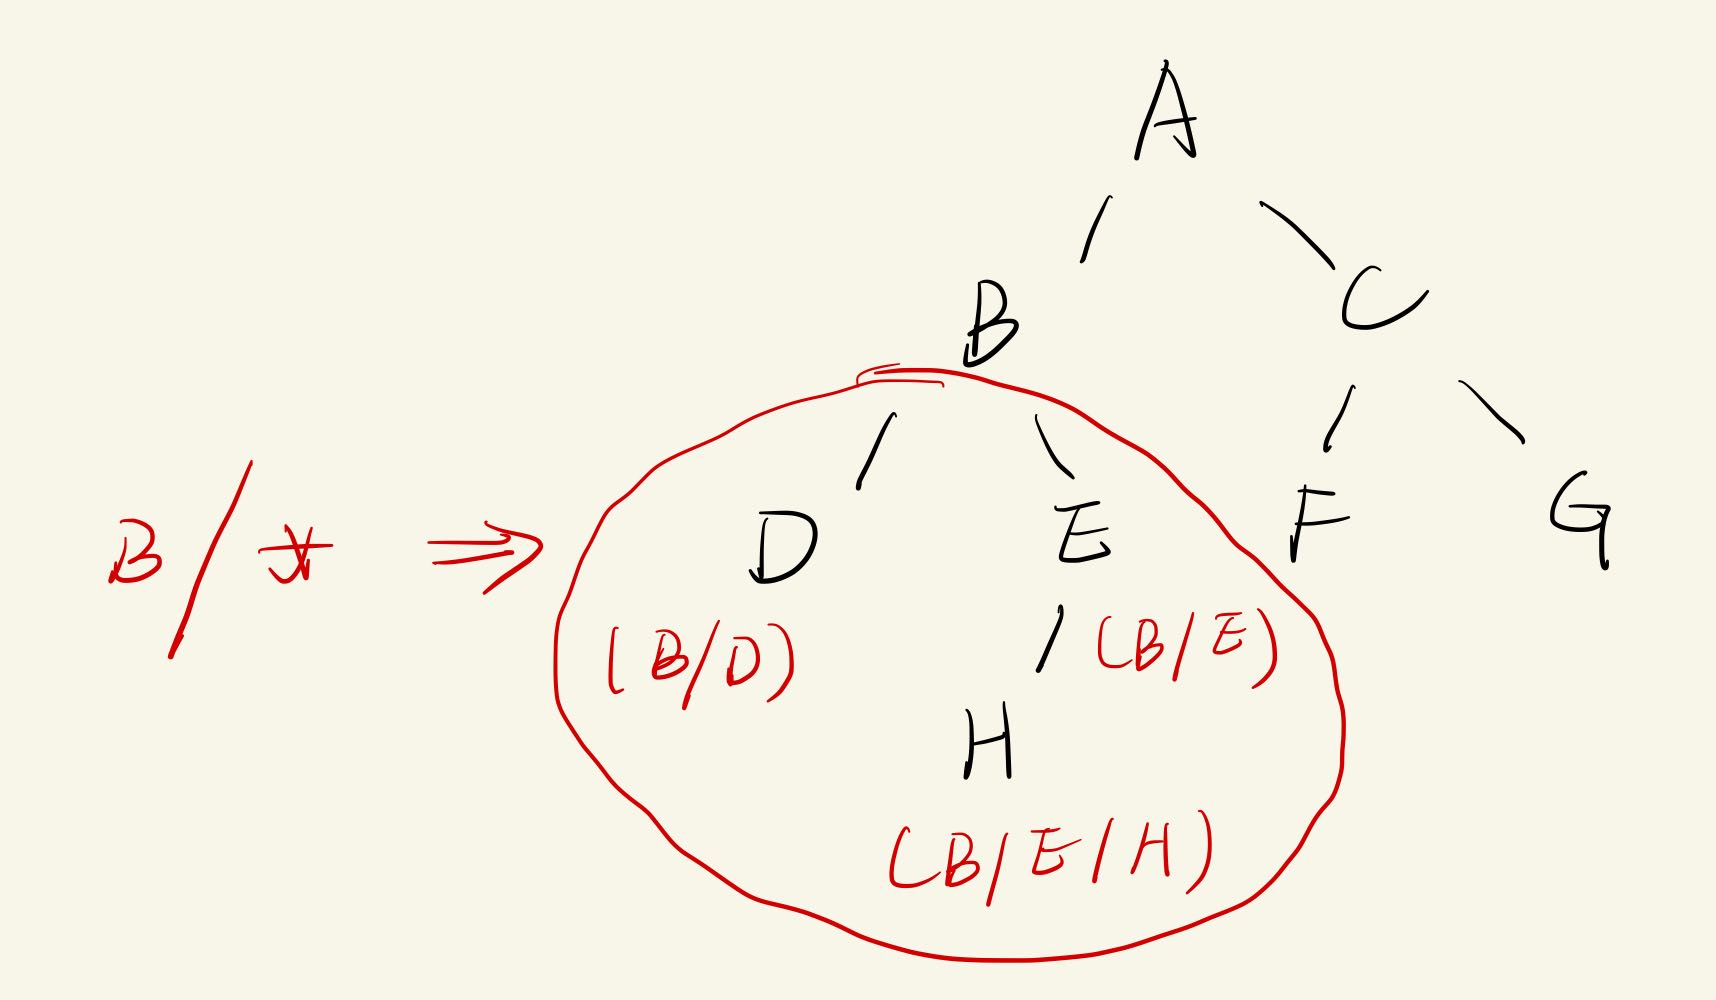 A
B C
D E F G
B/* ⇒
(B/D) (B/E)
H
(B/E/H)